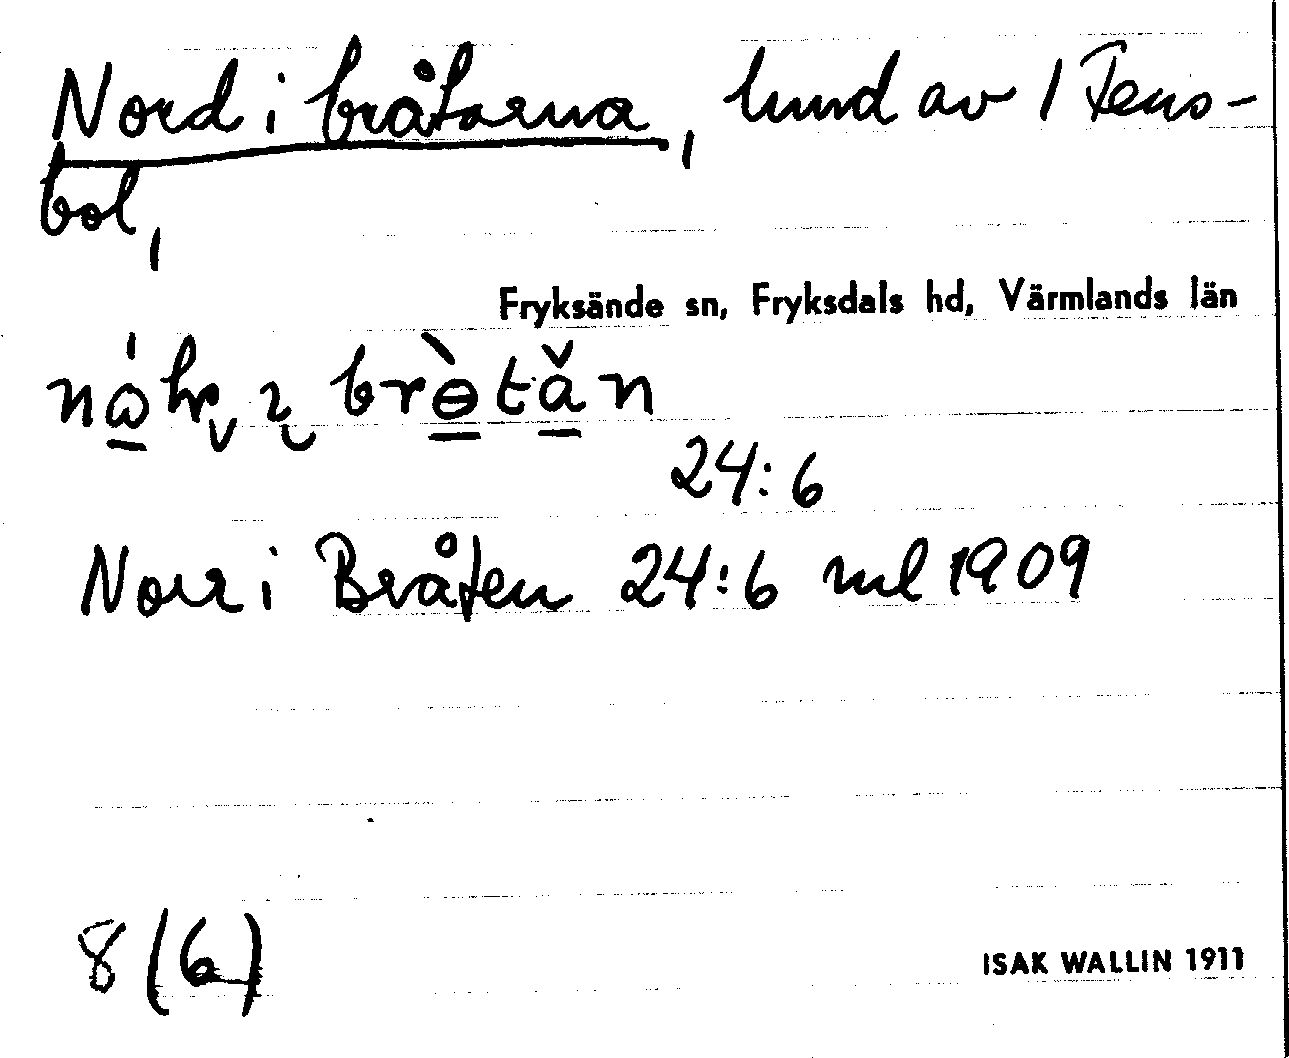 Nord i bråtarna, hmd av 1 Tens-
bol,
Fryksände sn, Fryksdals hd, Värmlands län
24:6
Norr i Bråten 24:6 ml 1909
8 (6)
ISAK WALLIN 1911